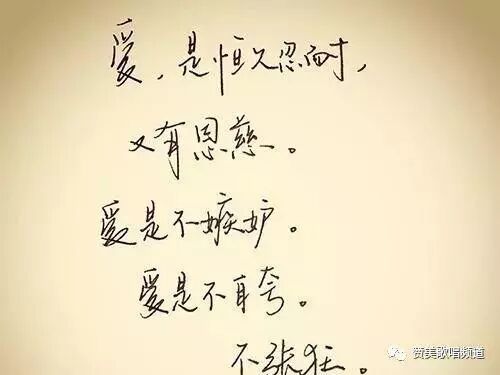 爱，是恒久忍耐，
又有恩慈。
爱是不嫉妒。
爱是不自夸。
不张狂。
赞美歌唱频道